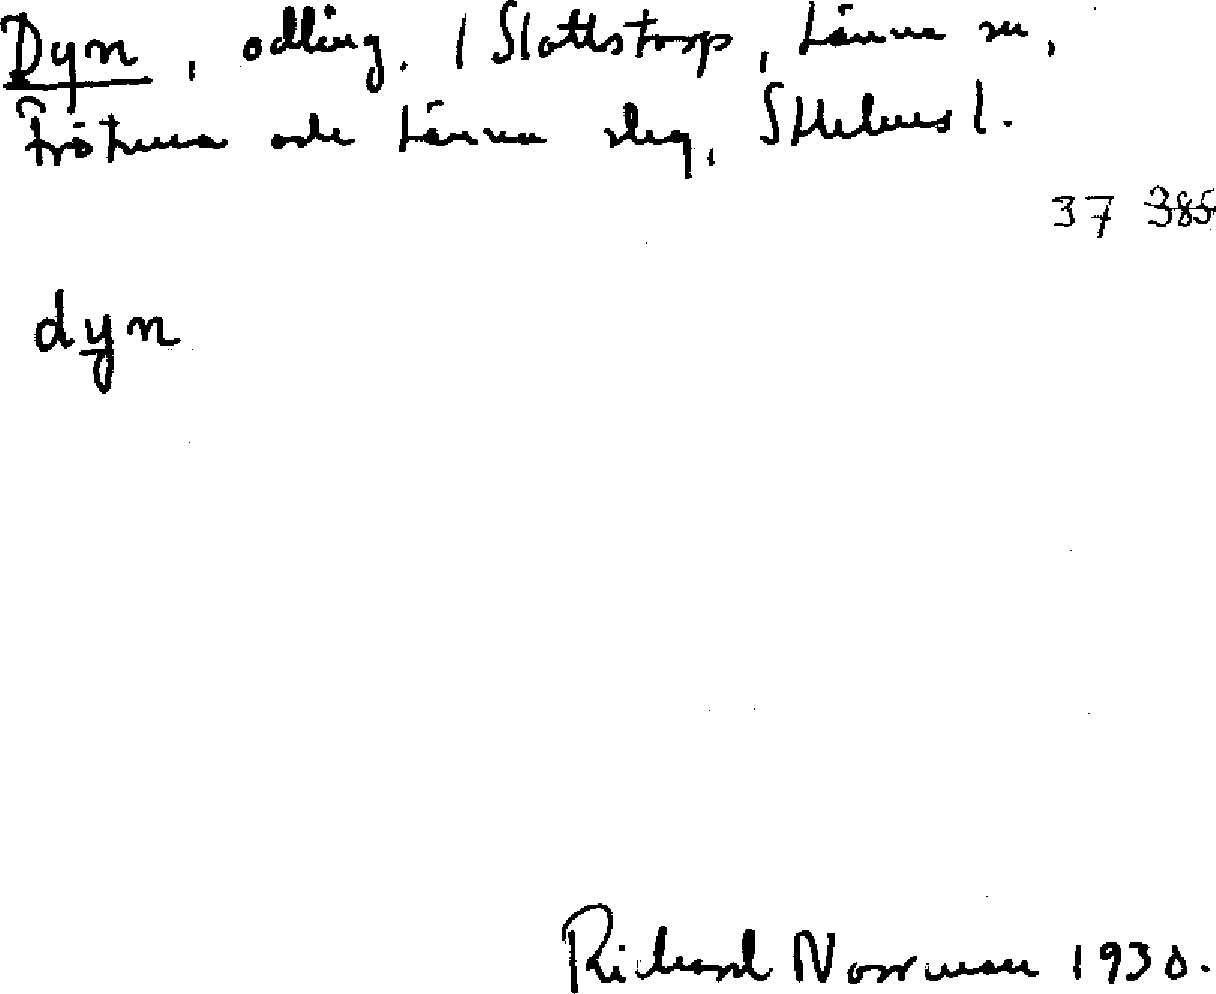 Dyn, odling. i Slottstorp, Länna sn,
Frötuna och Länna slag, Sthlms l.
37 385
dyn
Richard Norrman 1930.